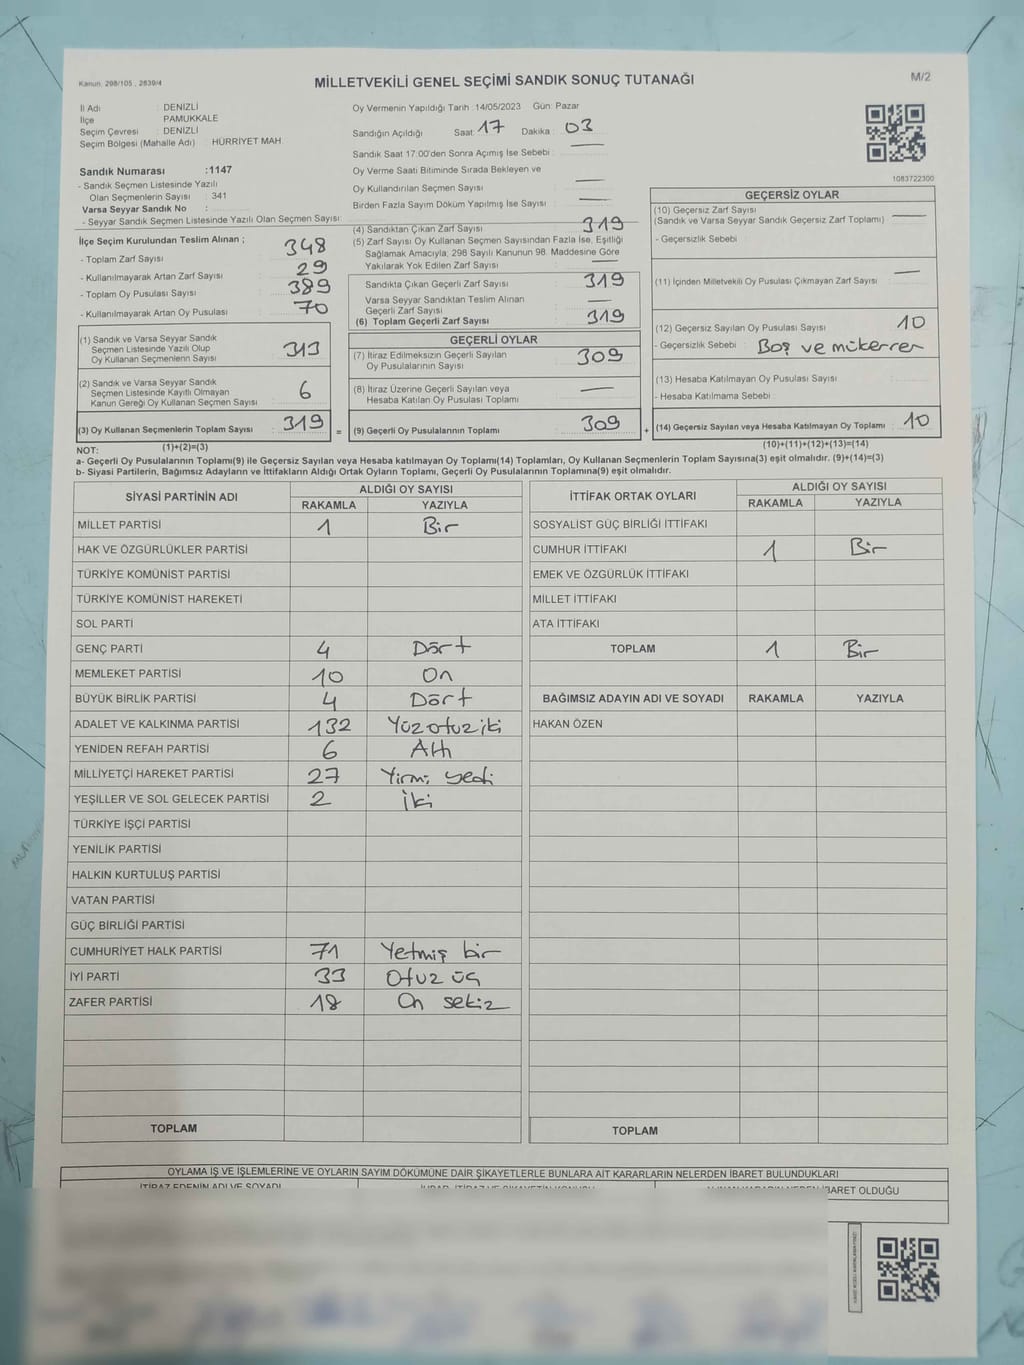 Kanun: 298/105 , 2839/4
MİLLETVEKİLİ GENEL SEÇİMİ SANDIK SONUÇ TUTANAĞI
M/2
İl Adı : DENİZLİ
İlçe PAMUKKALE
Seçim Çevresi : DENİZLİ
Seçim Bölgesi (Mahalle Adı) : HÜRRİYET MAH.
Sandık Numarası :1147
- Sandık Seçmen Listesinde Yazılı
Olan Seçmenlerin Sayısı : 341
Varsa Seyyar Sandık No :
- Seyyar Sandık Seçmen Listesinde Yazılı Olan Seçmen Sayısı:
İlçe Seçim Kurulundan Teslim Alınan ;
- Toplam Zarf Sayısı : 348
- Kullanılmayarak Artan Zarf Sayısı : 29
- Toplam Oy Pusulası Sayısı : 389
- Kullanılmayarak Artan Oy Pusulası : 70
(1) Sandık ve Varsa Seyyar Sandık
Seçmen Listesinde Yazılı Olup
Oy Kullanan Seçmenlerin Sayısı : 313
(2) Sandık ve Varsa Seyyar Sandık
Seçmen Listesinde Kayıtlı Olmayan
Kanun Gereği Oy Kullanan Seçmen Sayısı : 6
(3) Oy Kullanan Seçmenlerin Toplam Sayısı : 319 =
Oy Vermenin Yapıldığı Tarih : 14/05/2023 Gün: Pazar
Sandığın Açıldığı Saat: 17 Dakika : 03
Sandık Saat 17:00'den Sonra Açımış İse Sebebi : —
Oy Verme Saati Bitiminde Sırada Bekleyen ve
Oy Kullandırılan Seçmen Sayısı : —
Birden Fazla Sayım Döküm Yapılmış İse Sayısı : —
(4) Sandıktan Çıkan Zarf Sayısı : 319
(5) Zarf Sayısı Oy Kullanan Seçmen Sayısından Fazla İse, Eşitliği
Sağlamak Amacıyla; 298 Sayılı Kanunun 98. Maddesine Göre
Yakılarak Yok Edilen Zarf Sayısı : —
Sandıkta Çıkan Geçerli Zarf Sayısı : 319
Varsa Seyyar Sandıktan Teslim Alınan
Geçerli Zarf Sayısı : —
(6) Toplam Geçerli Zarf Sayısı : 319
GEÇERLİ OYLAR
(7) İtiraz Edilmeksizin Geçerli Sayılan
Oy Pusulalarının Sayısı : 309
(8) İtiraz Üzerine Geçerli Sayılan veya
Hesaba Katılan Oy Pusulası Toplamı : —
(9) Geçerli Oy Pusulalarının Toplamı : 309 +
1083722300
GEÇERSİZ OYLAR
(10) Geçersiz Zarf Sayısı
(Sandık ve Varsa Seyyar Sandık Geçersiz Zarf Toplamı) : —
- Geçersizlik Sebebi :
(11) İçinden Milletvekili Oy Pusulası Çıkmayan Zarf Sayısı : —
(12) Geçersiz Sayılan Oy Pusulası Sayısı : 10
- Geçersizlik Sebebi : Boş ve mükerrer
(13) Hesaba Katılmayan Oy Pusulası Sayısı :
- Hesaba Katılmama Sebebi :
(14) Geçersiz Sayılan veya Hesaba Katılmayan Oy Toplamı : 10
NOT: (1)+(2)=(3) (10)+(11)+(12)+(13)=(14)
a- Geçerli Oy Pusulalarının Toplamı(9) ile Geçersiz Sayılan veya Hesaba katılmayan Oy Toplamı(14) Toplamları, Oy Kullanan Seçmenlerin Toplam Sayısına(3) eşit olmalıdır. (9)+(14)=(3)
b- Siyasi Partilerin, Bağımsız Adayların ve İttifakların Aldığı Ortak Oyların Toplamı, Geçerli Oy Pusulalarının Toplamına(9) eşit olmalıdır.
SİYASİ PARTİNİN ADI ALDIĞI OY SAYISI
RAKAMLA YAZIYLA
MİLLET PARTİSİ 1 Bir
HAK VE ÖZGÜRLÜKLER PARTİSİ
TÜRKİYE KOMÜNİST PARTİSİ
TÜRKİYE KOMÜNİST HAREKETİ
SOL PARTİ
GENÇ PARTİ 4 Dört
MEMLEKET PARTİSİ 10 On
BÜYÜK BİRLİK PARTİSİ 4 Dört
ADALET VE KALKINMA PARTİSİ 132 Yüzotuziki
YENİDEN REFAH PARTİSİ 6 Altı
MİLLİYETÇİ HAREKET PARTİSİ 27 Yirmi yedi
YEŞİLLER VE SOL GELECEK PARTİSİ 2 İki
TÜRKİYE İŞÇİ PARTİSİ
YENİLİK PARTİSİ
HALKIN KURTULUŞ PARTİSİ
VATAN PARTİSİ
GÜÇ BİRLİĞİ PARTİSİ
CUMHURİYET HALK PARTİSİ 71 Yetmiş bir
İYİ PARTİ 33 Otuz üç
ZAFER PARTİSİ 18 On sekiz
TOPLAM
İTTİFAK ORTAK OYLARI ALDIĞI OY SAYISI
RAKAMLA YAZIYLA
SOSYALİST GÜÇ BİRLİĞİ İTTİFAKI
CUMHUR İTTİFAKI 1 Bir
EMEK VE ÖZGÜRLÜK İTTİFAKI
MİLLET İTTİFAKI
ATA İTTİFAKI
TOPLAM 1 Bir
BAĞIMSIZ ADAYIN ADI VE SOYADI RAKAMLA YAZIYLA
HAKAN ÖZEN
TOPLAM
OYLAMA İŞ VE İŞLEMLERİNE VE OYLARIN SAYIM DÖKÜMÜNE DAİR ŞİKAYETLERLE BUNLARA AİT KARARLARIN NELERDEN İBARET BULUNDUKLARI
İTİRAZ EDENİN ADI VE SOYADI
İBARET OLDUĞU